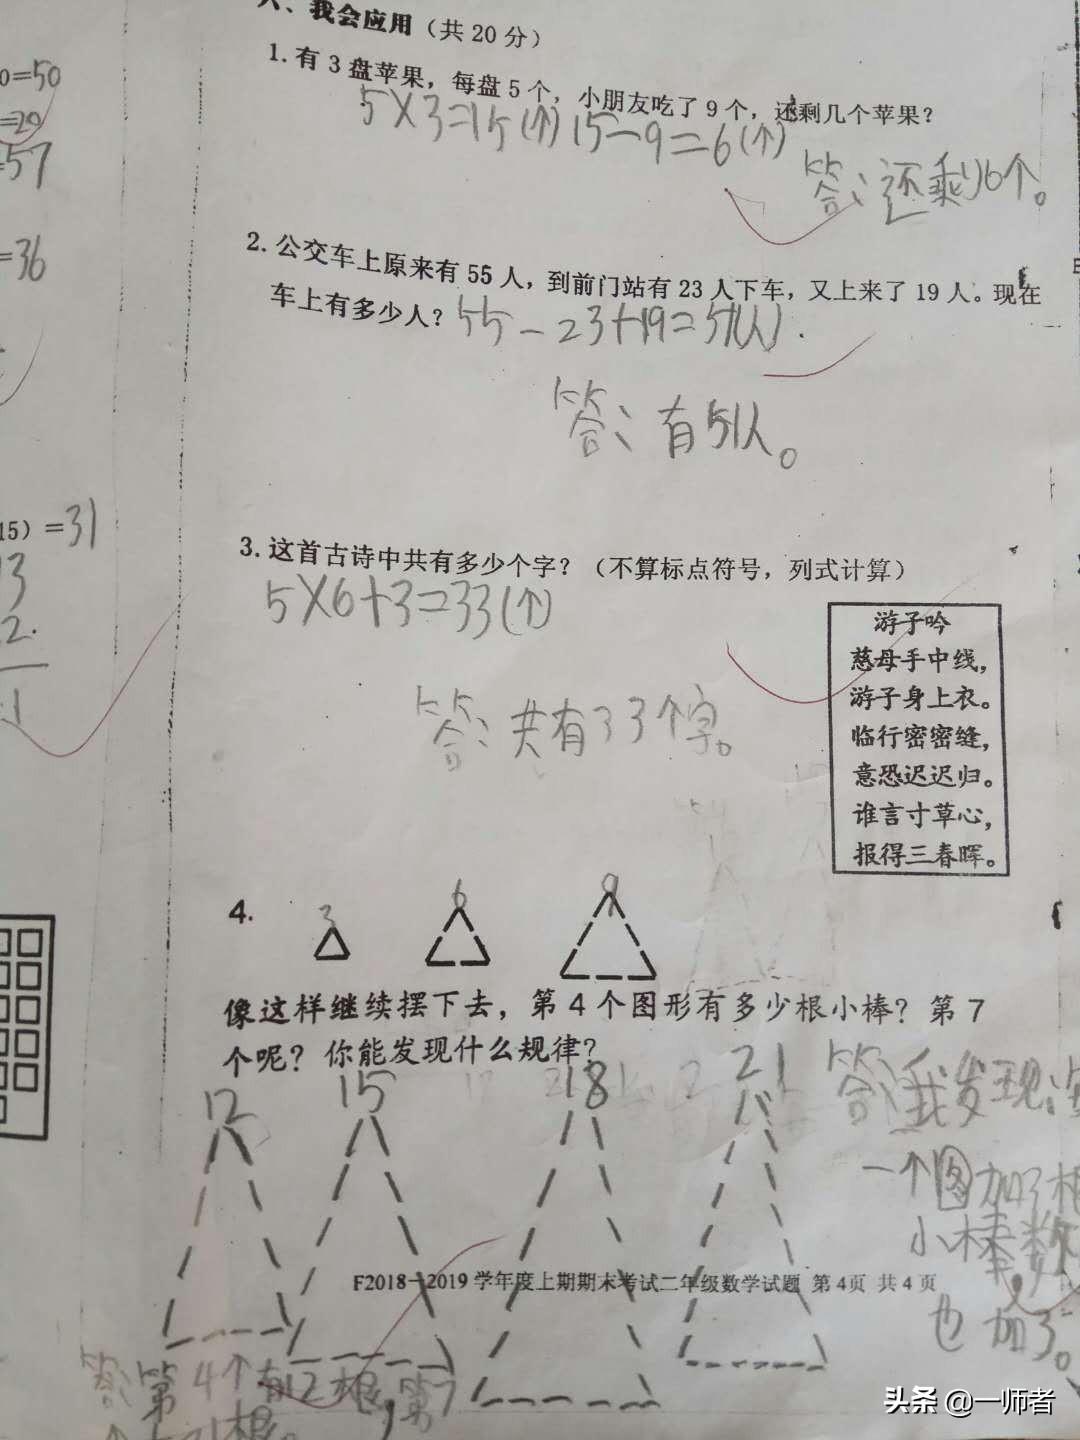 六、我会应用（共20分）
1. 有3盘苹果，每盘5个，小朋友吃了9个，还剩几个苹果？
5×3=15(个) 15-9=6(个)
答：还剩6个。
2. 公交车上原来有55人，到前门站有23人下车，又上来了19人。现在
车上有多少人？ 55-23+19=51(人)
答：有51人。
3. 这首古诗中共有多少个字？（不算标点符号，列式计算）
5×6+3=33(个)
答：共有33个字。
游子吟
慈母手中线，
游子身上衣。
临行密密缝，
意恐迟迟归。
谁言寸草心，
报得三春晖。
4.
3 6 9
像这样继续摆下去，第4个图形有多少根小棒？第7
个呢？你能发现什么规律？
12 15 18 21
答：我发现：
一个图加3根
小棒数
也加3。
F2018-2019学年度上期期末考试二年级数学试题 第4页 共4页
答：第4个有12根，第7
个 21根。
0=50
=29
=57
=36
15）=31
头条 @一师者